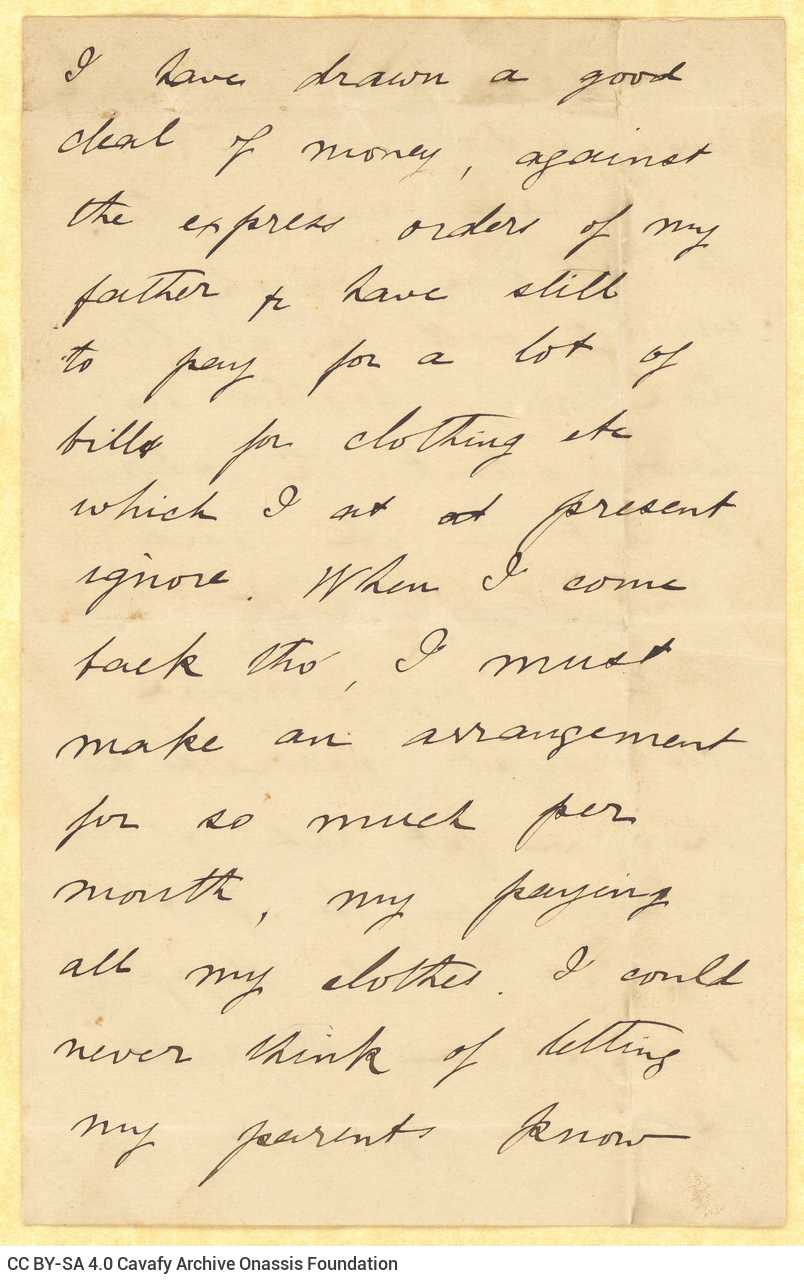 I have drawn a good
deal of money, against
the express orders of my
father & have still
to pay for a lot of
bills for clothing etc
which I at at present
ignore. When I come
back tho', I must
make an arrangement
for so much per
month, my paying
all my clothes. I could
never think of letting
my parents know
CC BY-SA 4.0 Cavafy Archive Onassis Foundation